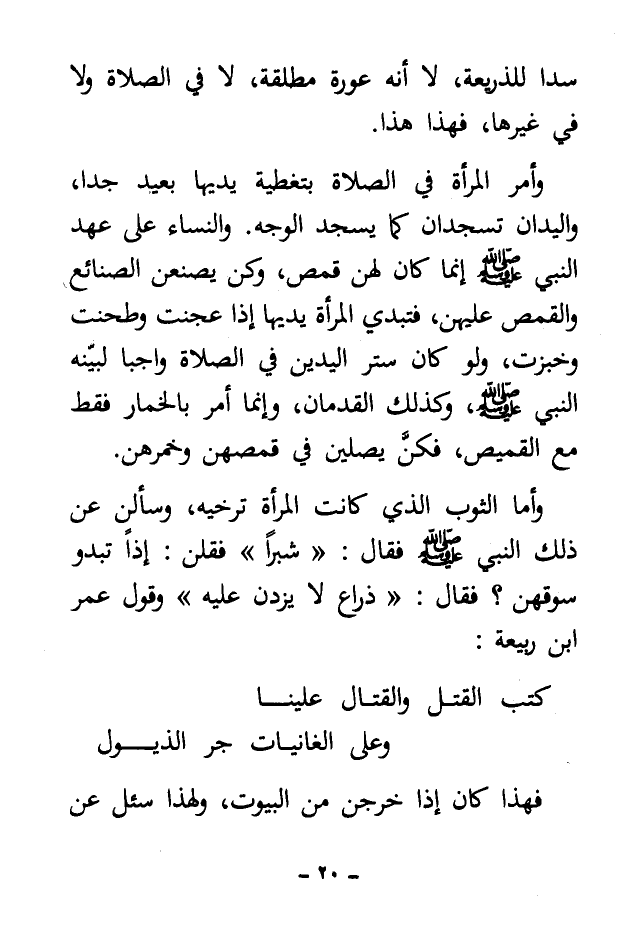 سدا للذريعة، لا أنه عورة مطلقة، لا في الصلاة ولا
في غيرها، فهذا هذا.
وأمر المرأة في الصلاة بتغطية يديها بعيد جدا،
واليدان تسجدان كما يسجد الوجه. والنساء على عهد
النبي ﷺ إنما كان لهن قمص، وكن يصنعن الصنائع
والقمص عليهن، فتبدي المرأة يديها إذا عجنت وطحنت
وخبزت، ولو كان ستر اليدين في الصلاة واجبا لبيّنه
النبي ﷺ، وكذلك القدمان، وإنما أمر بالخمار فقط
مع القميص، فكنَّ يصلين في قمصهن وخمرهن.
وأما الثوب الذي كانت المرأة ترخيه، وسألن عن
ذلك النبي ﷺ فقال : « شبراً » فقلن : إذاً تبدو
سوقهن ؟ فقال : « ذراع لا يزدن عليه » وقول عمر
ابن ربيعة :
كتب القتـل والقتـال علينـــا
وعلى الغانيـات جر الذيـــول
فهذا كان إذا خرجن من البيوت، ولهذا سئل عن
- ٢٠ -